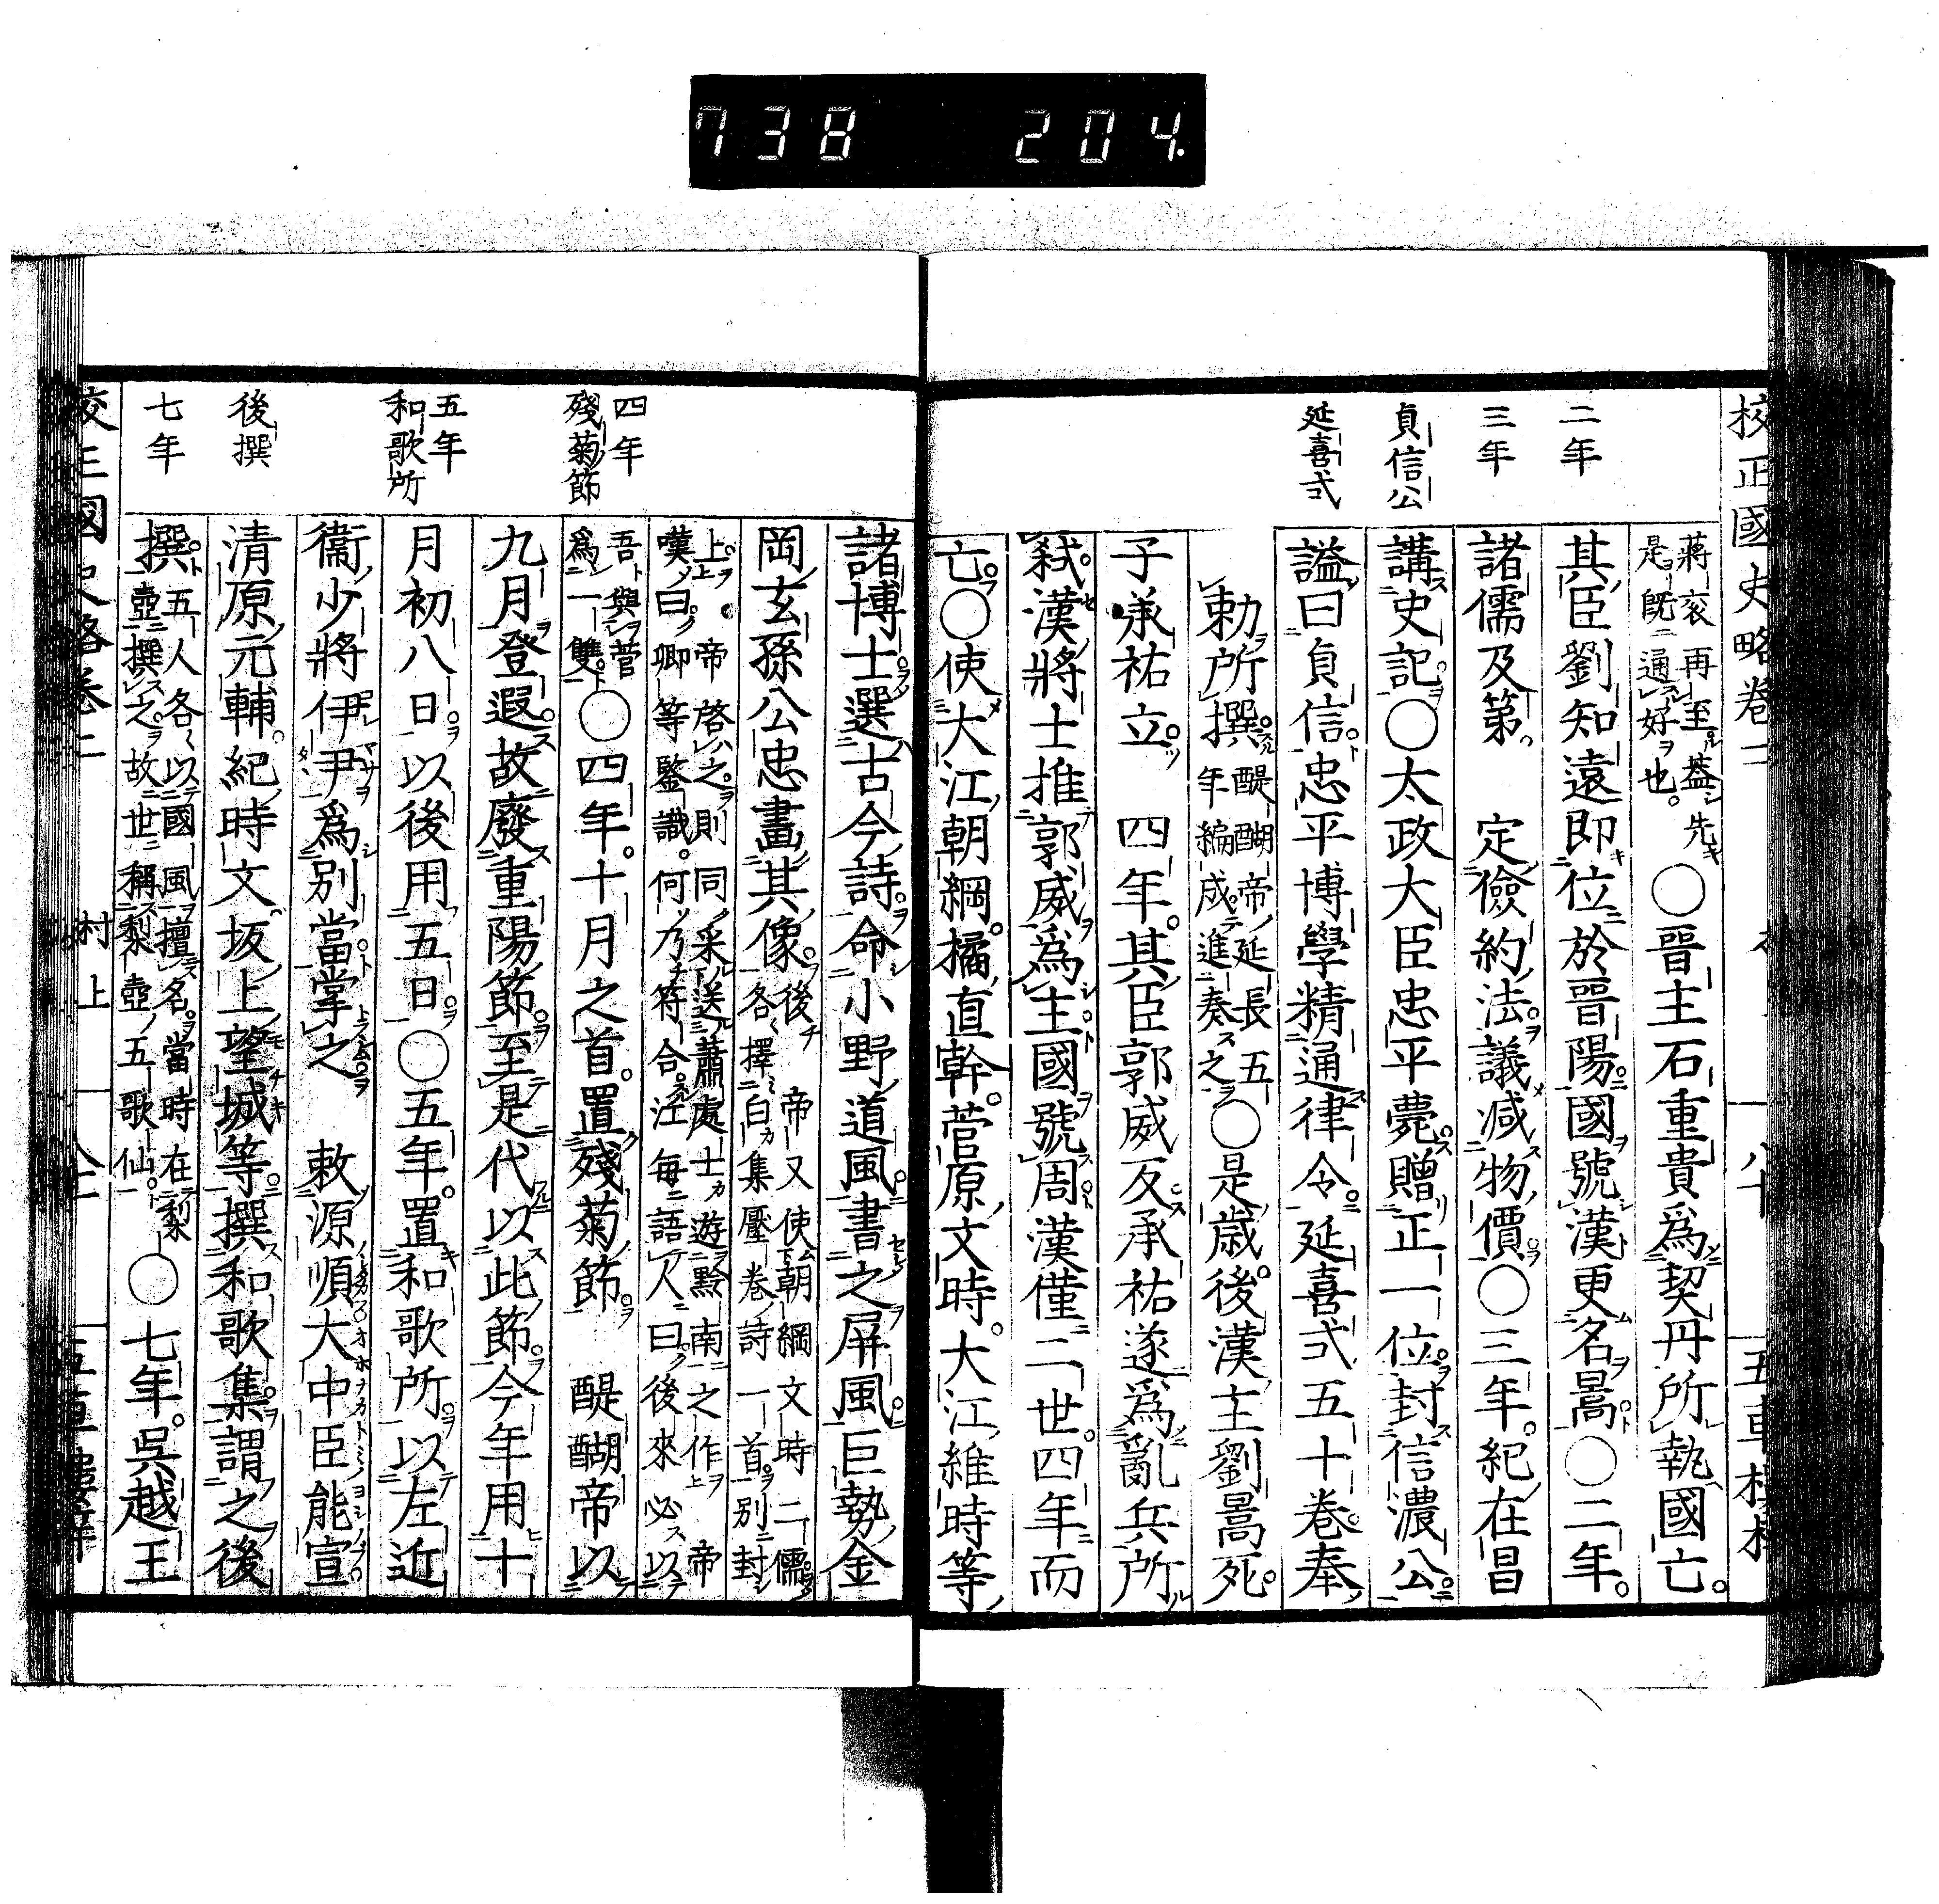 738 204.
校正國史略卷二
二年
三年
貞信公
延喜式
蔣衮再至葢先
是既通好也。
○晋主石重貴爲契丹所執國亡。
其臣劉知遠即位於晋陽國號漢更名暠○二年。
諸儒及第。定儉約法議减物價○三年。紀在昌
講史記○太政大臣忠平薨贈正一位封信濃公
謚曰貞信忠平博學精通律令延喜式五十卷奉
勅所撰
醍醐帝延長五
年編成進奏之
○是歲後漢主劉暠死。
子承祐立。四年。其臣郭威反承祐遂爲亂兵所
弑漢將士推郭威爲主國號周漢僅二世。四年而
亡○使大江朝綱。橘直幹。菅原文時。大江維時等
諸博士選古今詩命小野道風書之屏風巨勢金
岡玄孫公忠畫其像
後帝又使朝綱文時二儒
各擇白集壓卷詩一首別封
上帝啓之則同采送蕭處士遊黔南之作帝
嘆曰卿等鑒識。何乃符合江每語人曰後來必以
吾與菅
爲一雙
○四年。十月之首。置殘菊節 醍醐帝以
九月登遐故廢重陽節至是代以此節今年用十
月初八日以後用五日○五年。置和歌所以左近
衞少將伊尹爲別當掌之 敕源順大中臣能宣
清原元輔紀時文坂上望城等撰和歌集謂之後
撰
五人各以國風擅名當時在梨
壺撰之故世稱梨壺五歌仙
○七年。吳越王
四年
殘菊節
五年
和歌所
後撰
七年
村上